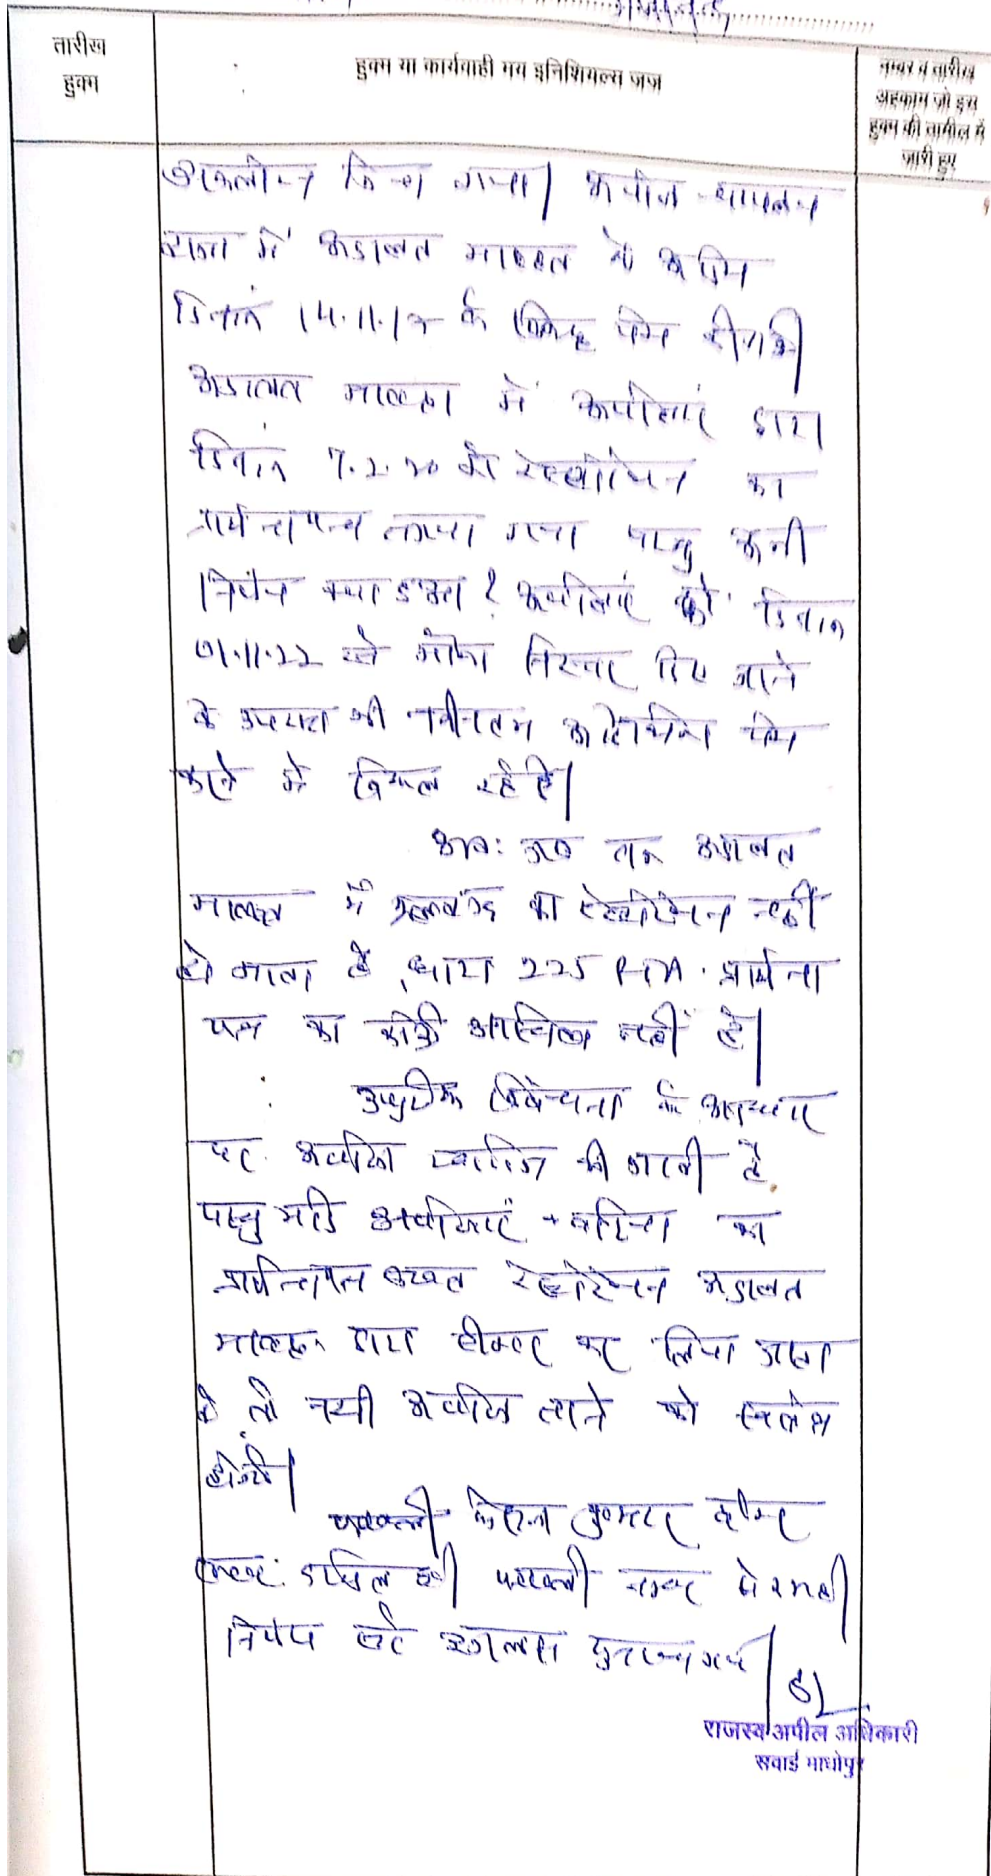 तारीख
हुक्म
हुक्म या कार्यवाही मय इनिशियल्स जज
नम्बर व तारीख
अहकाम जो इस
हुक्म की तामील में
जारी हुए
किया गया।
में अदालत मातहत के आदेश
दिनांक 14.11.17 के विरूद्ध पेश की गयी
अदालत मातहत में अपीलाएं द्वारा
दिनांक 7.2.20 को रेस्टोरेशन का
प्रार्थनापत्र लगाया गया परन्तु
निर्णय क्या हुआ? अपीलाएं को दिनांक
01.11.22 से मौका निरन्तर दिए जाने
के उपरान्त भी नवीनतम आदेशिका पेश
करने में विफल रहे है।
अतः जब तक अदालत
मातहत में का रेस्टोरेशन नहीं
हो जाता है, धारा 225 RTA. प्रार्थना
पत्र का कोई अस्तित्व नहीं है।
उपरोक्त विवेचना के आधार
पर अपील खारिज की जाती है
परन्तु यदि अपीलाएं का
प्रार्थनापत्र बाबत रेस्टोरेशन अदालत
मातहत द्वारा स्वीकार कर लिया जाता
है तो नयी अपील लाने को स्वतंत्र
होगी।
पत्रावली फैसल शुमार होकर
दाखिल हो। पत्रावली नम्बर से कम हो
निर्णय सरे इजलास सुनाया गया।
राजस्व अपील अधिकारी
सवाई माधोपुर